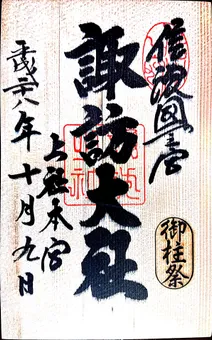 信濃國一之宮
諏訪大社
上社本宮
平成二十八年十月九日
御柱祭